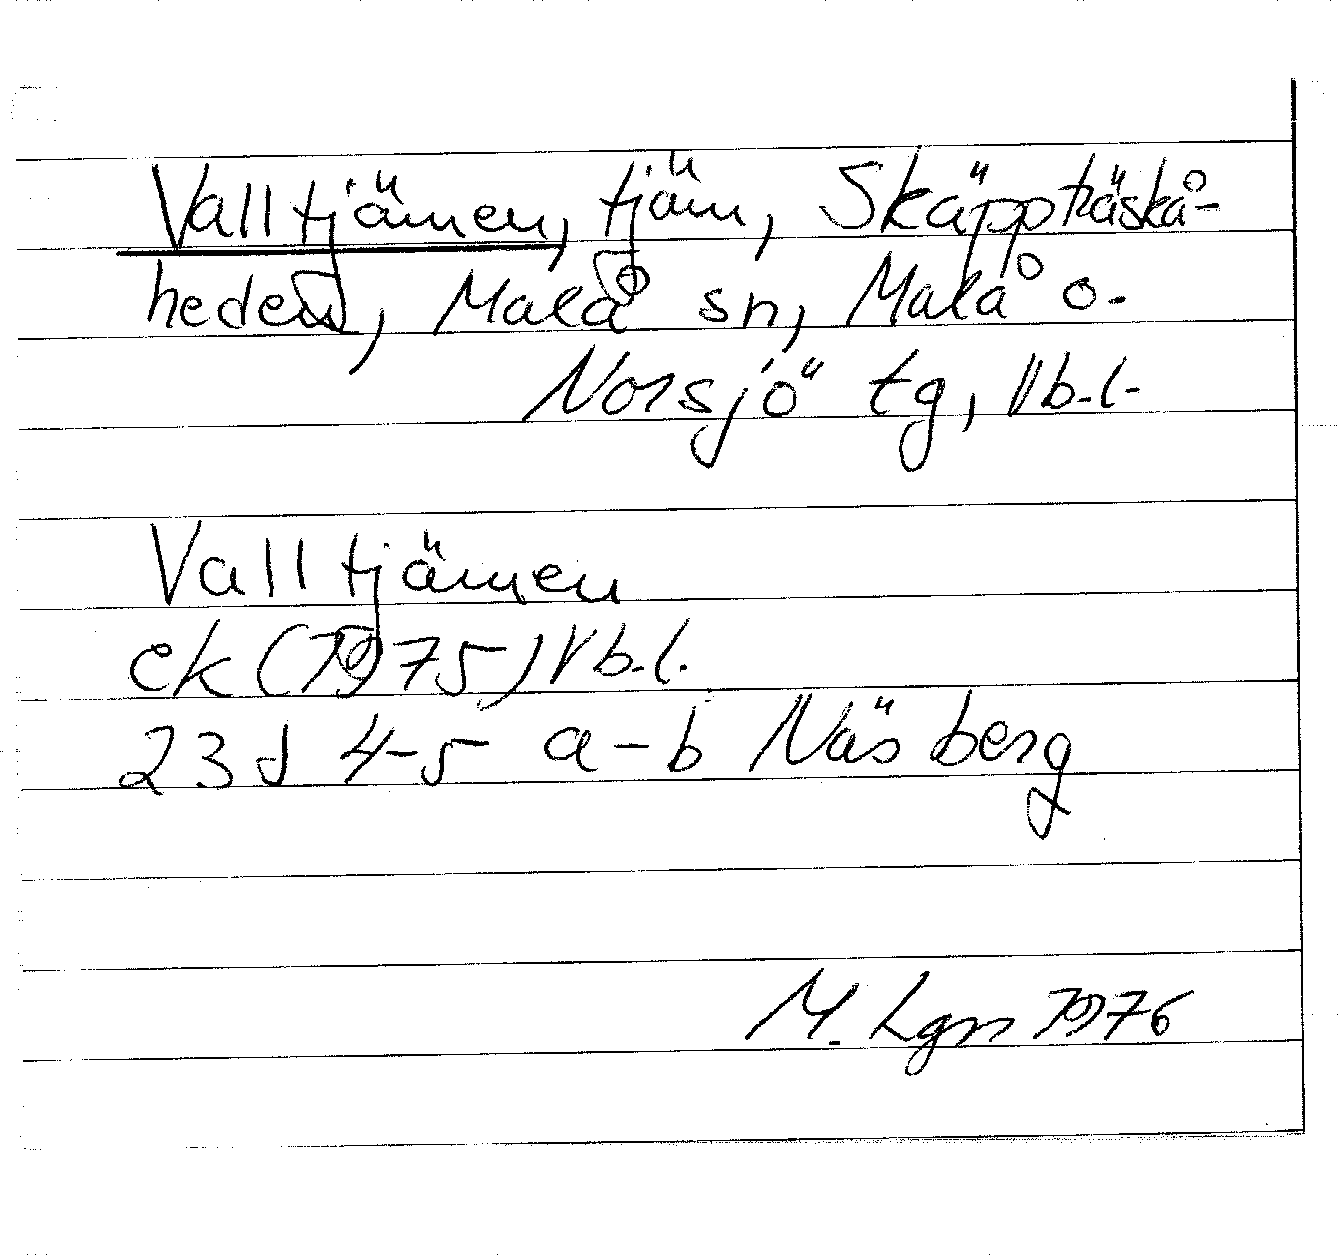 Valltjärnen, tjärn, Skäppträskå-
heden, Malå sn, Malå o.
Norsjö tg, Vb.l.
Valltjärnen
ek (1975) Vb.l.
23J 4-5 a-b Näsberg
M. Lgn 1976